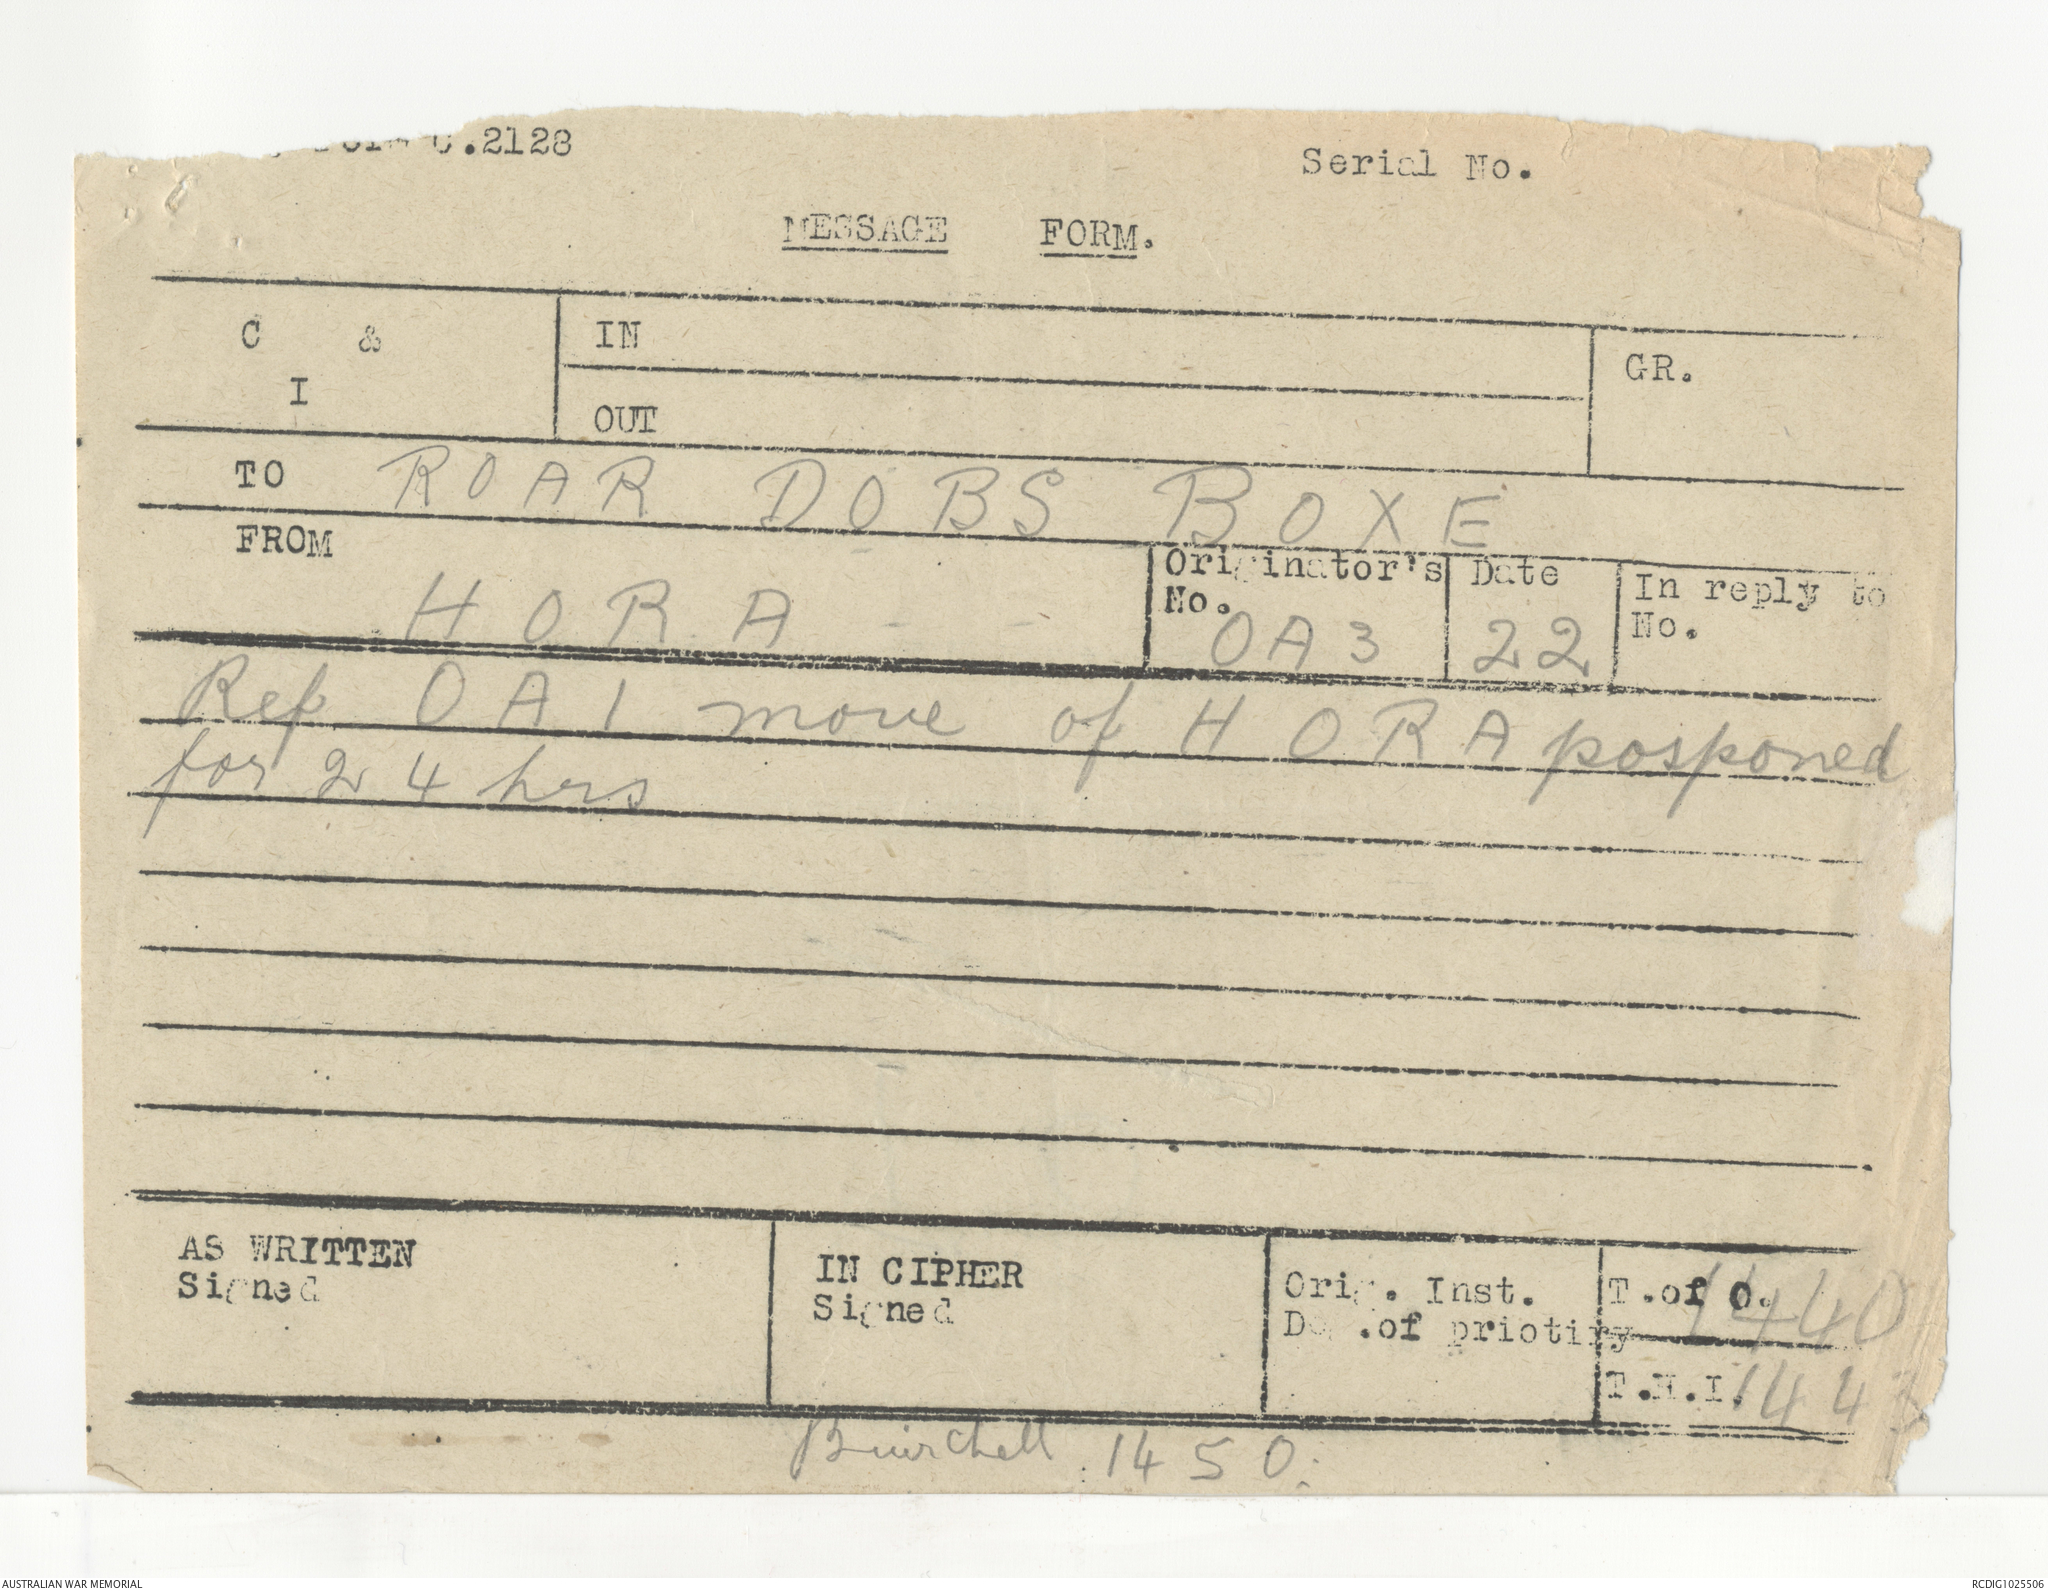 C.2128
Serial No.
MESSAGE FORM.
C &
I
IN
OUT
GR.
TO ROAR DOBS BOXE
FROM HORA
Originator's No. OA3
Date 22
In reply to No.
Ref OA1 move of HORA posponed
for 24 hrs
AS WRITTEN
Signed
IN CIPHER
Signed
Orig. Inst.
Deg.of priotiry
T.of O. 1440
T.H.I. 1443
Burchell 1450.
AUSTRALIAN WAR MEMORIAL
RCDIG1025506